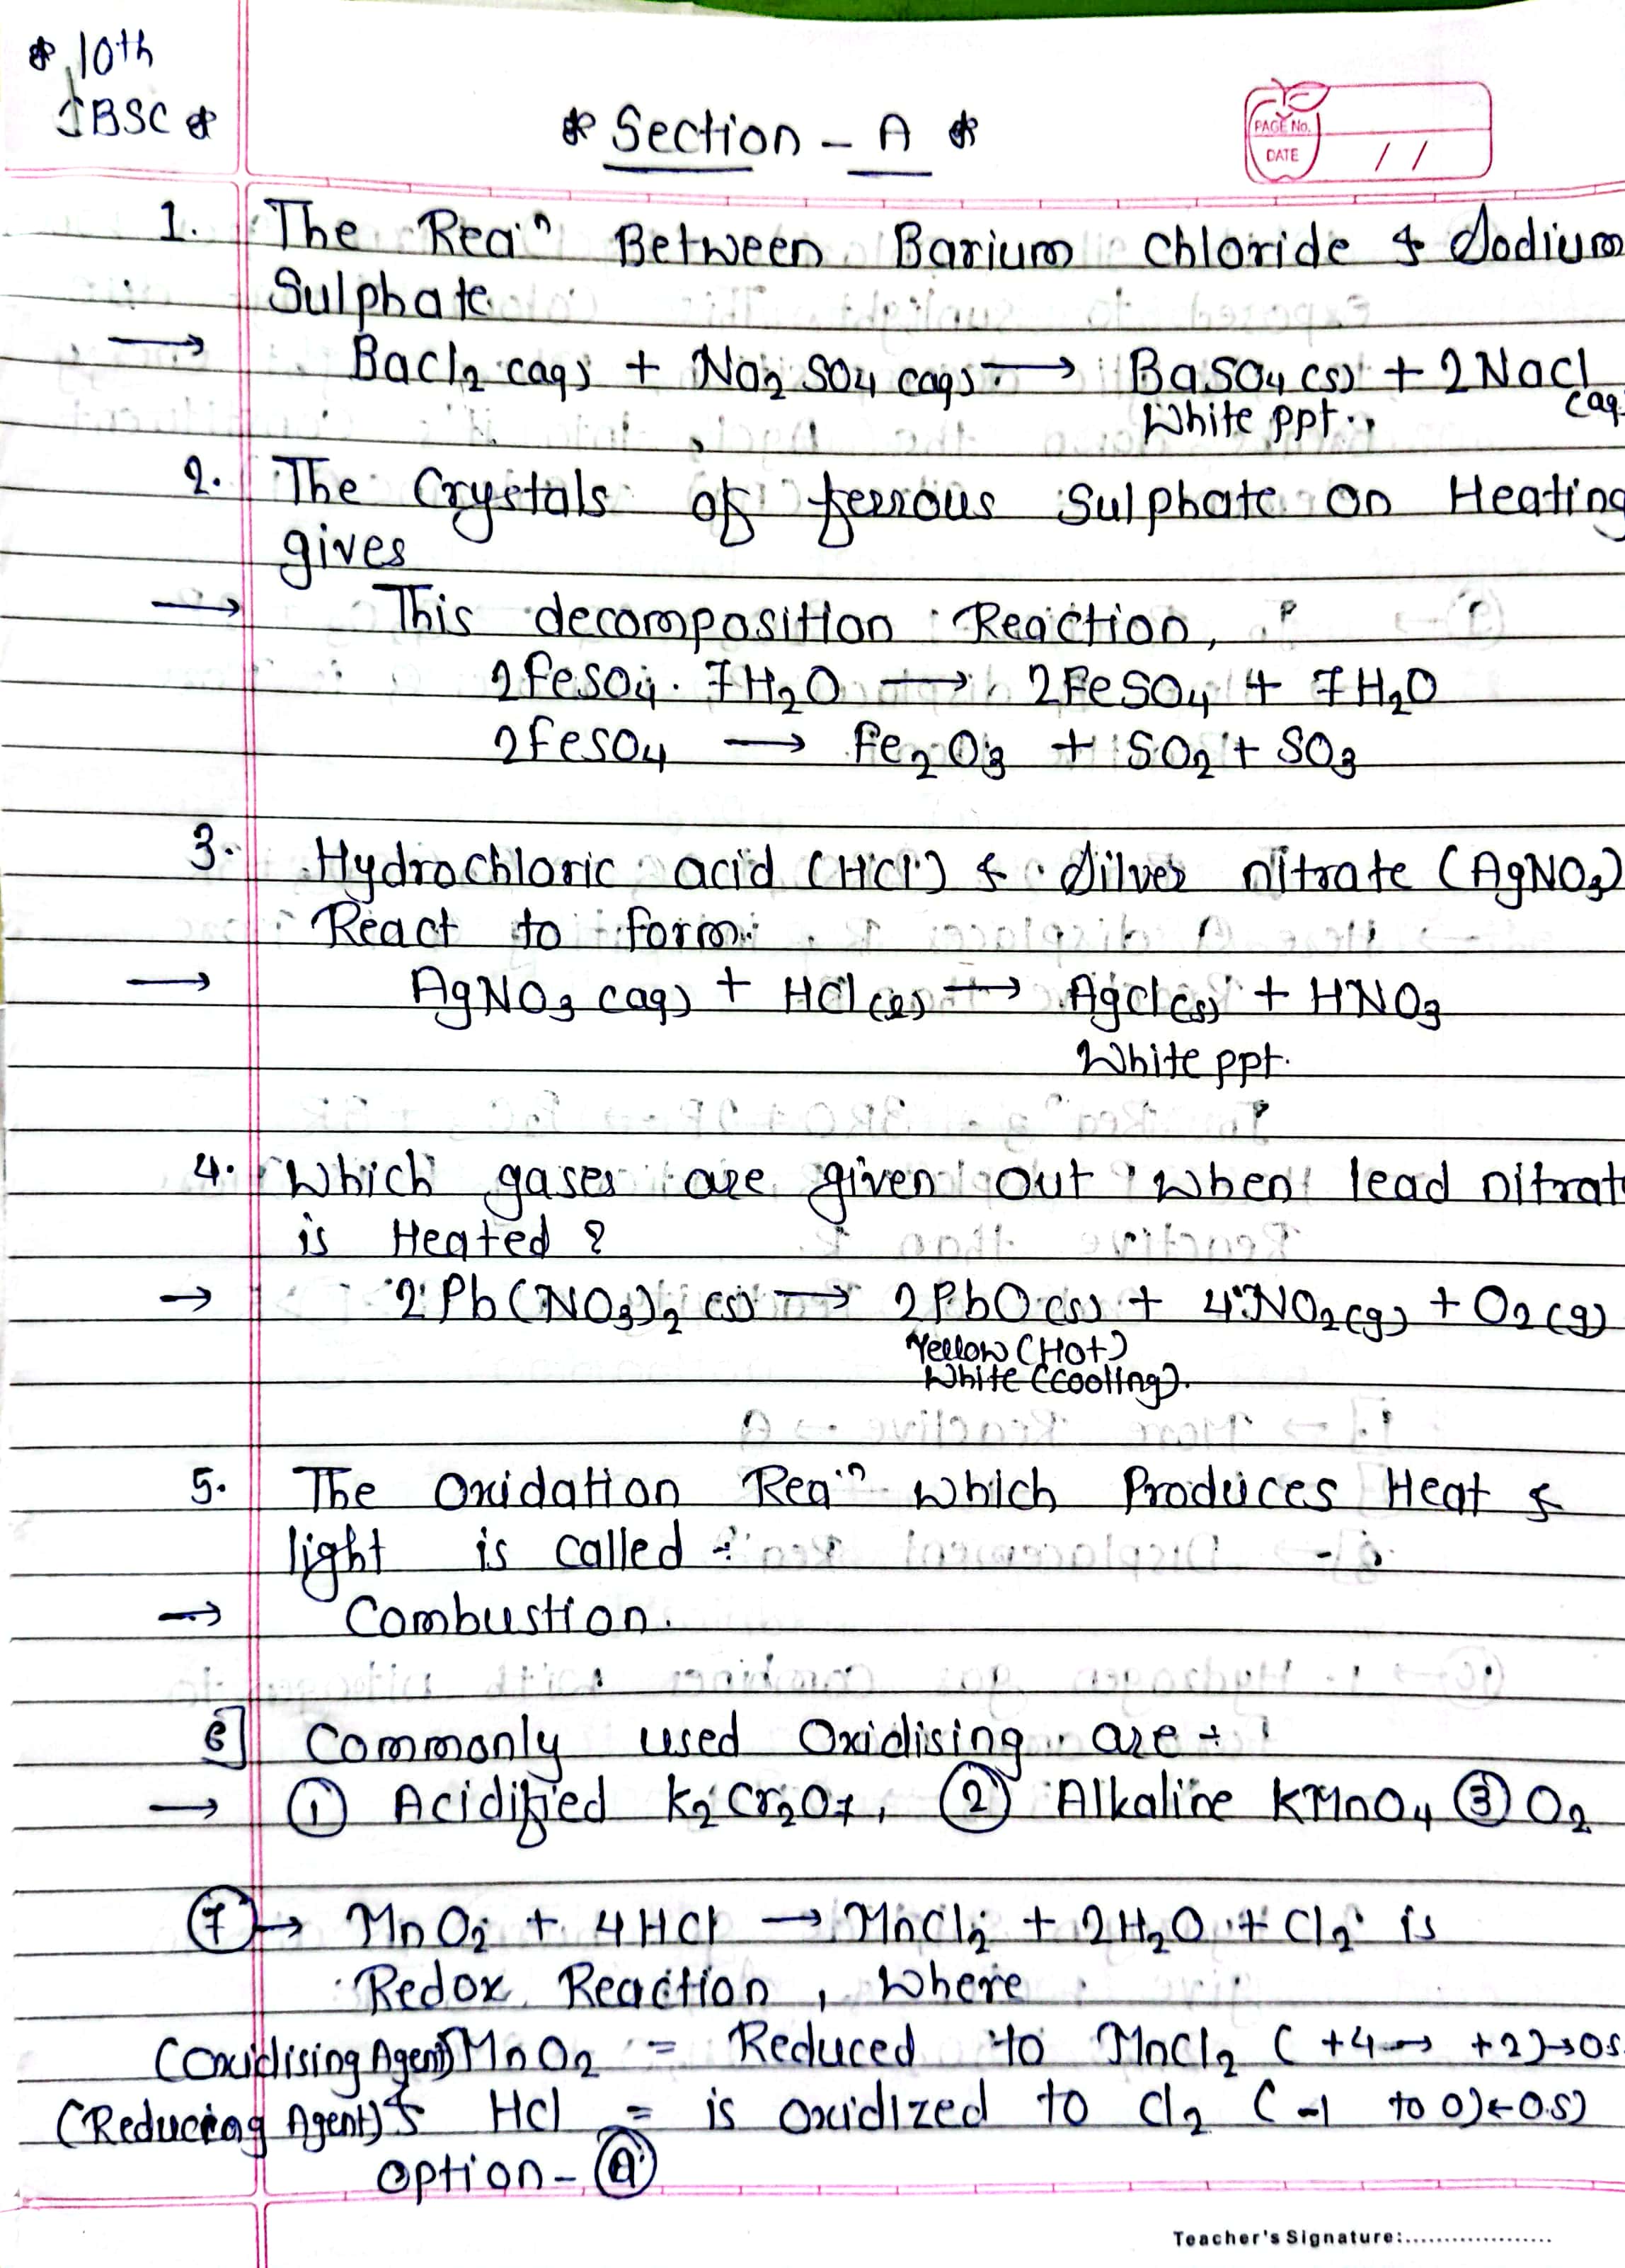 * 10th
JBSC *
* Section - A *
PAGE No.
DATE / /
1. The Rea^n Between Barium Chloride & Sodium
Sulphate
→ BaCl2 (aq) + Na2 SO4 (aq) → BaSO4 (s) + 2NaCl
White ppt. (aq)
2. The Crystals of ferrous Sulphate on Heating
gives
→ This decomposition Reaction,
2FeSO4. 7H2O → 2FeSO4 + 7H2O
2FeSO4 → Fe2O3 + SO2 + SO3
3. Hydrochloric acid (HCl) & Silver nitrate (AgNO3)
React to form:
→ AgNO3 (aq) + HCl (l) → AgCl (s) + HNO3
White ppt.
4. Which gases are given out when lead nitrat
is Heated ?
→ 2 Pb(NO3)2 (s) → 2PbO (s) + 4 NO2 (g) + O2 (g)
Yellow (Hot)
White (cooling).
5. The Oxidation Rea^n which Produces Heat &
light is called :
→ Combustion.
6] Commonly used Oxidising are ÷
→ ① Acidified K2Cr2O7, ② Alkaline KMnO4 ③ O2
⑦ → MnO2 + 4HCl → MnCl2 + 2H2O + Cl2 is
Redox Reaction, Where
(Oxidising Agent) MnO2 = Reduced to MnCl2 ( +4 → +2) → O.S
(Reducing Agent) & HCl = is oxidized to Cl2 ( -1 to 0) ← O.S)
option - Ⓐ
Teacher's Signature:....................